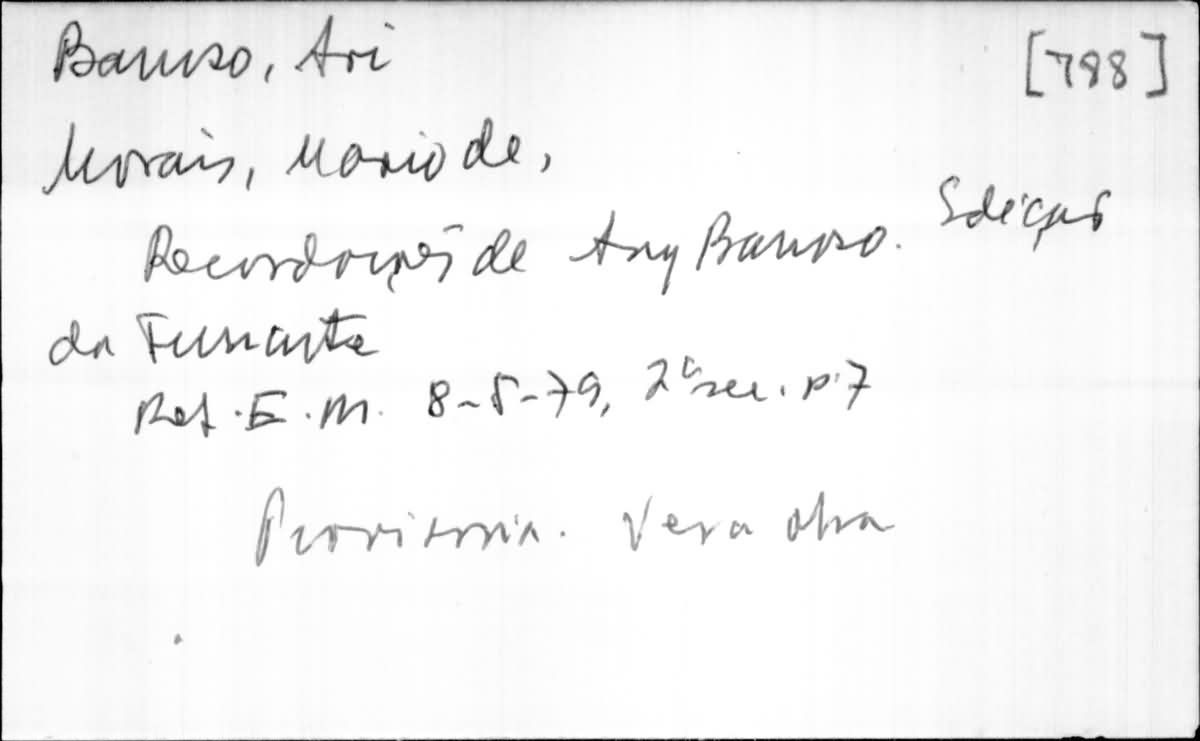 Barroso, Ari [788]
Morais, Mario de,
Recordações de Ary Barroso. Edição
da Funarte
Ref. E. M. 8-5-79, 2ª sec. p. 7
Provisoria. Ver a obra